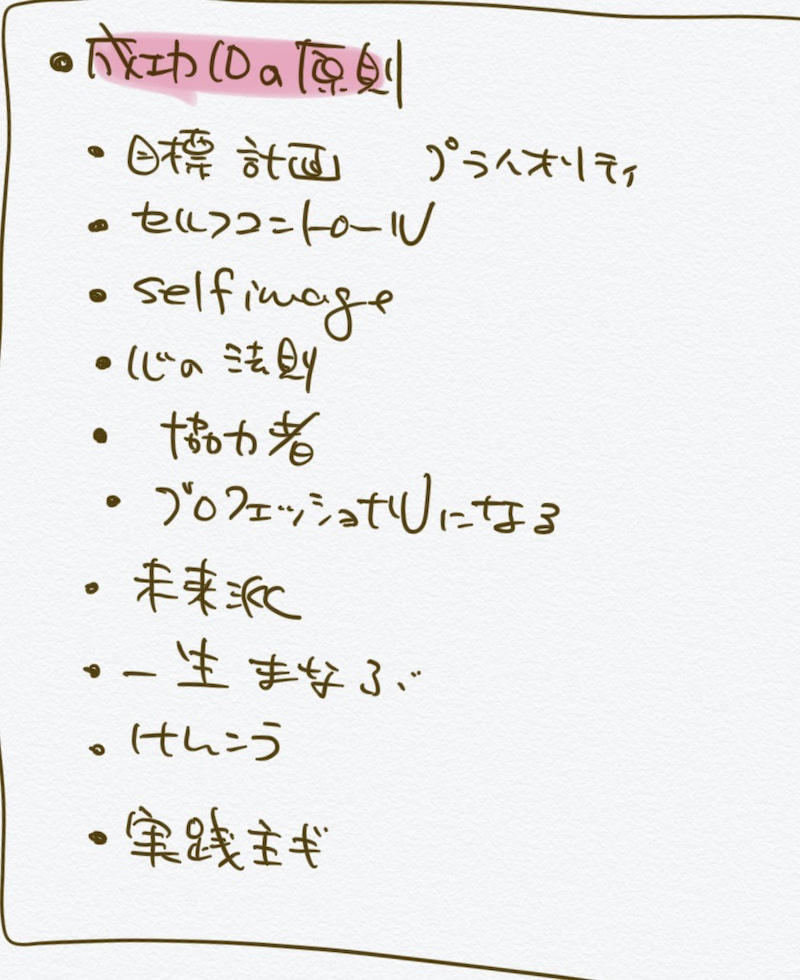 • 成功10の原則
• 目標 計画 プライオリティ
• セルフコントロール
• self image
• 心の法則
• 協力者
• プロフェッショナルになる
• 未来派
• 一生まなぶ
• けんこう
• 実践主ギ